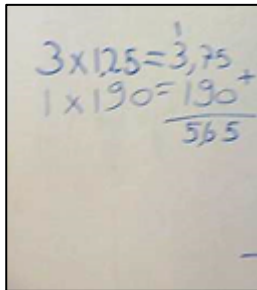 1
3 x 1,25 = 3,75
1 x 190 = 190 +
5,65